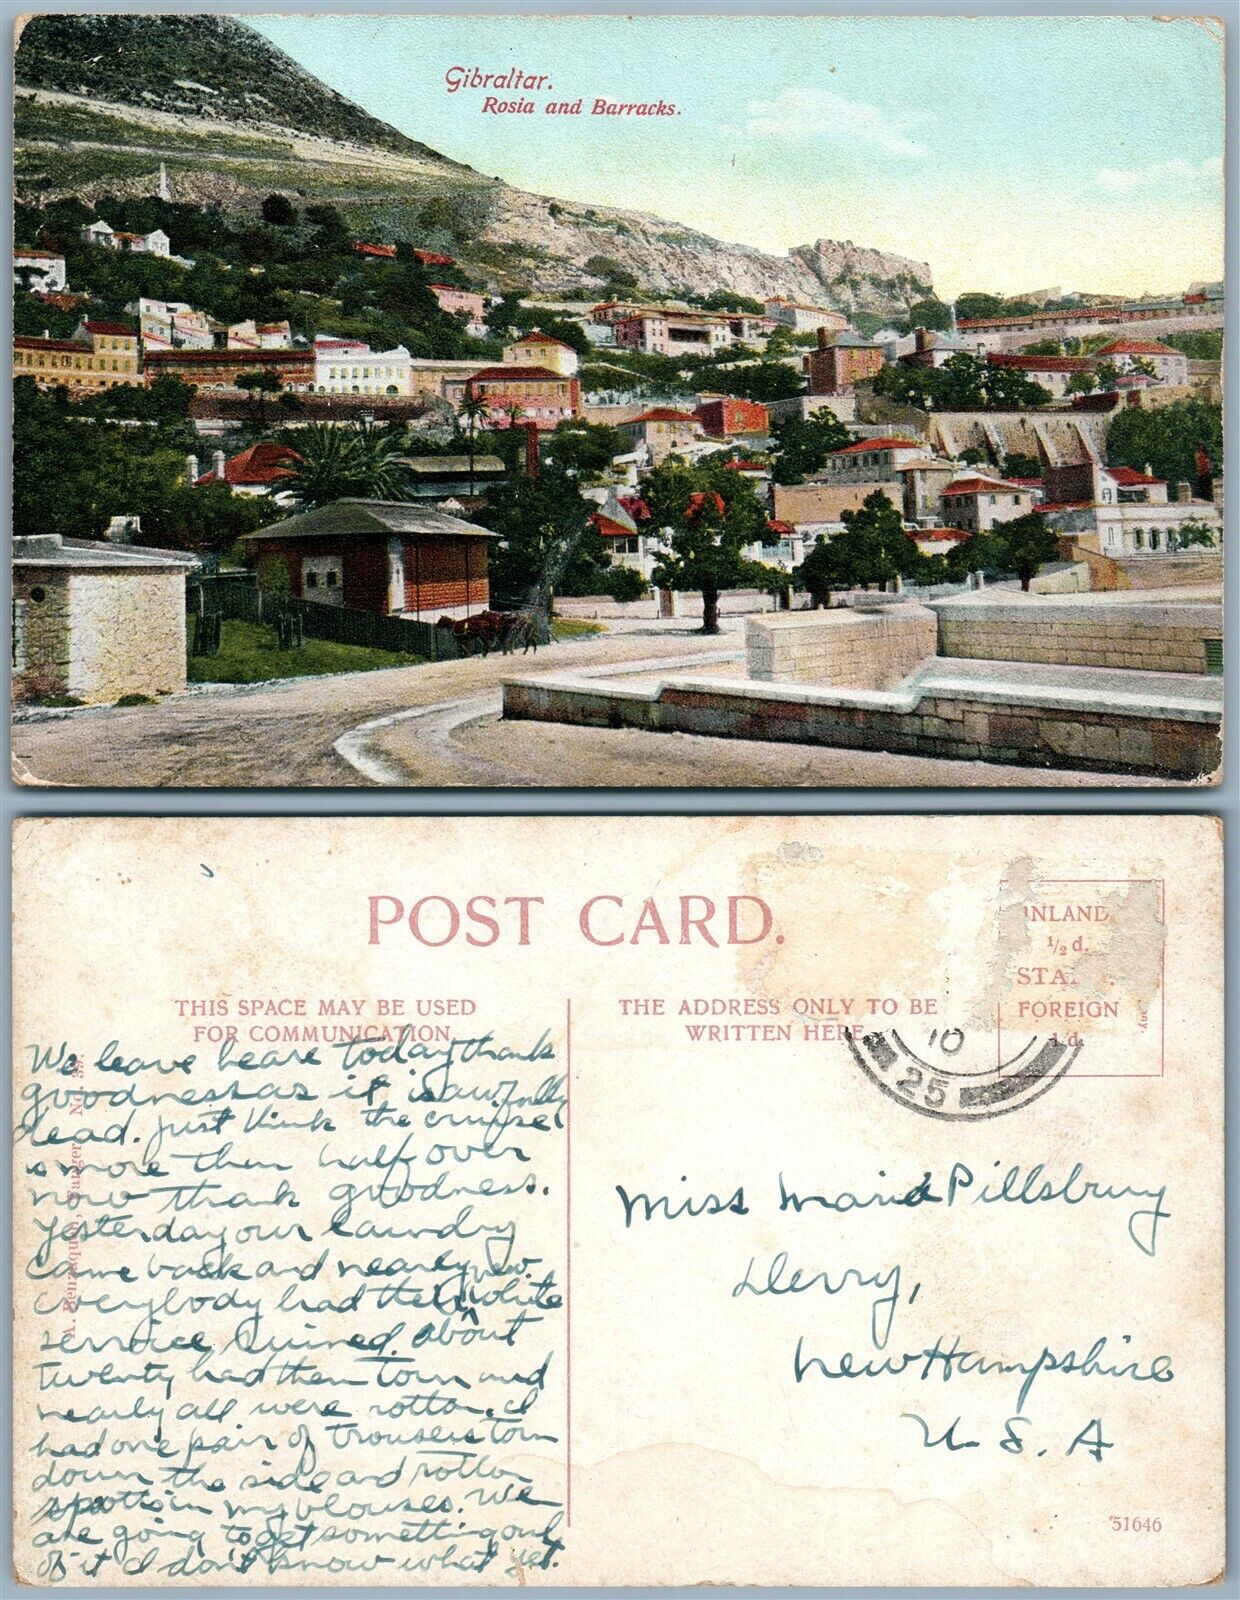 Gibraltar.
Rosia and Barracks.
POST CARD.
INLAND
½ d.
STA
FOREIGN
1 d.
THIS SPACE MAY BE USED
FOR COMMUNICATION
THE ADDRESS ONLY TO BE
WRITTEN HERE
10
25
We leave heare today thank
goodness as it is awfully
dead. Just think the cruise
is more than half over
now thank goodness.
Yesterday our laundry
came back and nearly
everybody had their new white
service ruined. About
twenty had them torn and
nearly all were rotton. I
had one pair of trousers torn
down the side and rotton
spotts in my blouses. We
are going to get sometting out
of it I don't know what yet.
Miss Marie Pillsbury
Derry,
New Hampshire
U. S. A
A. Benzaquen, Tanger
51646